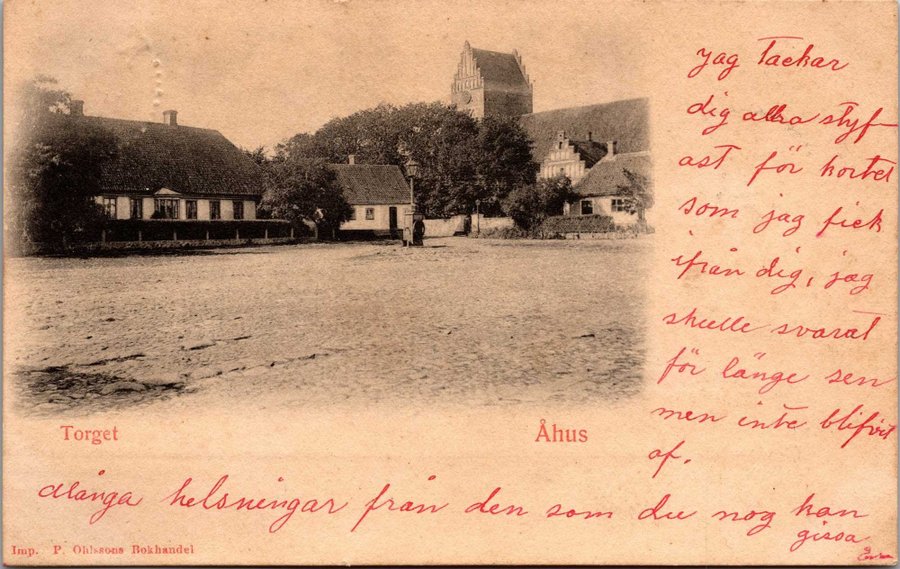 Jag Tackar
dig allra styf
ast för kortet
som jag fick
ifrån dig, jag
skulle svarat
för länge sen
men inte blifvit
af.
Torget
Åhus
Många helsningar från den som du nog kan
gissa
Imp. P. Ohlssons Bokhandel